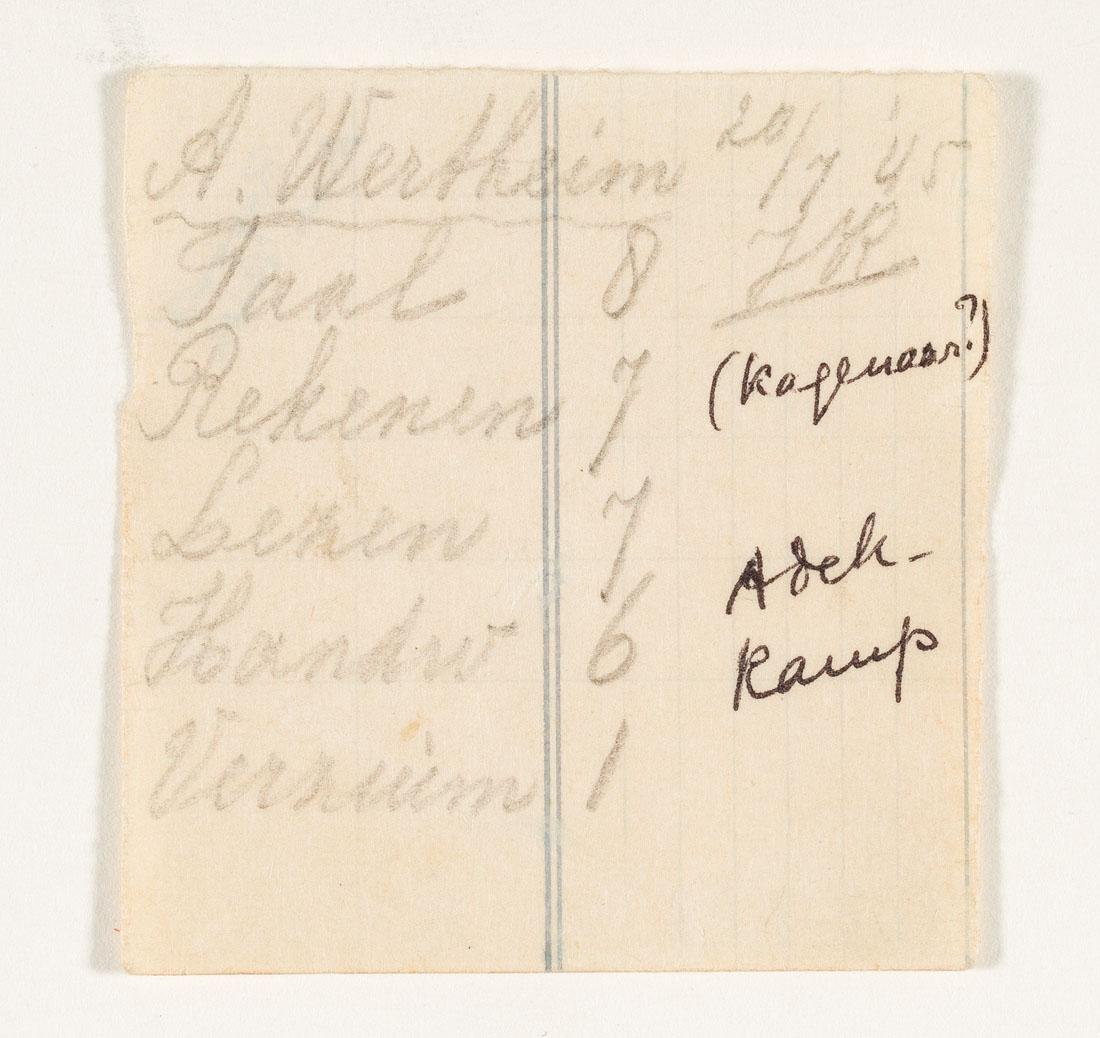 A. Wertheim 20/7 '45
Taal 8
Rekenen 7
(Kagenaar?)
Lezen 7
Adek-
Handw 6
kamp
Verzuim 1